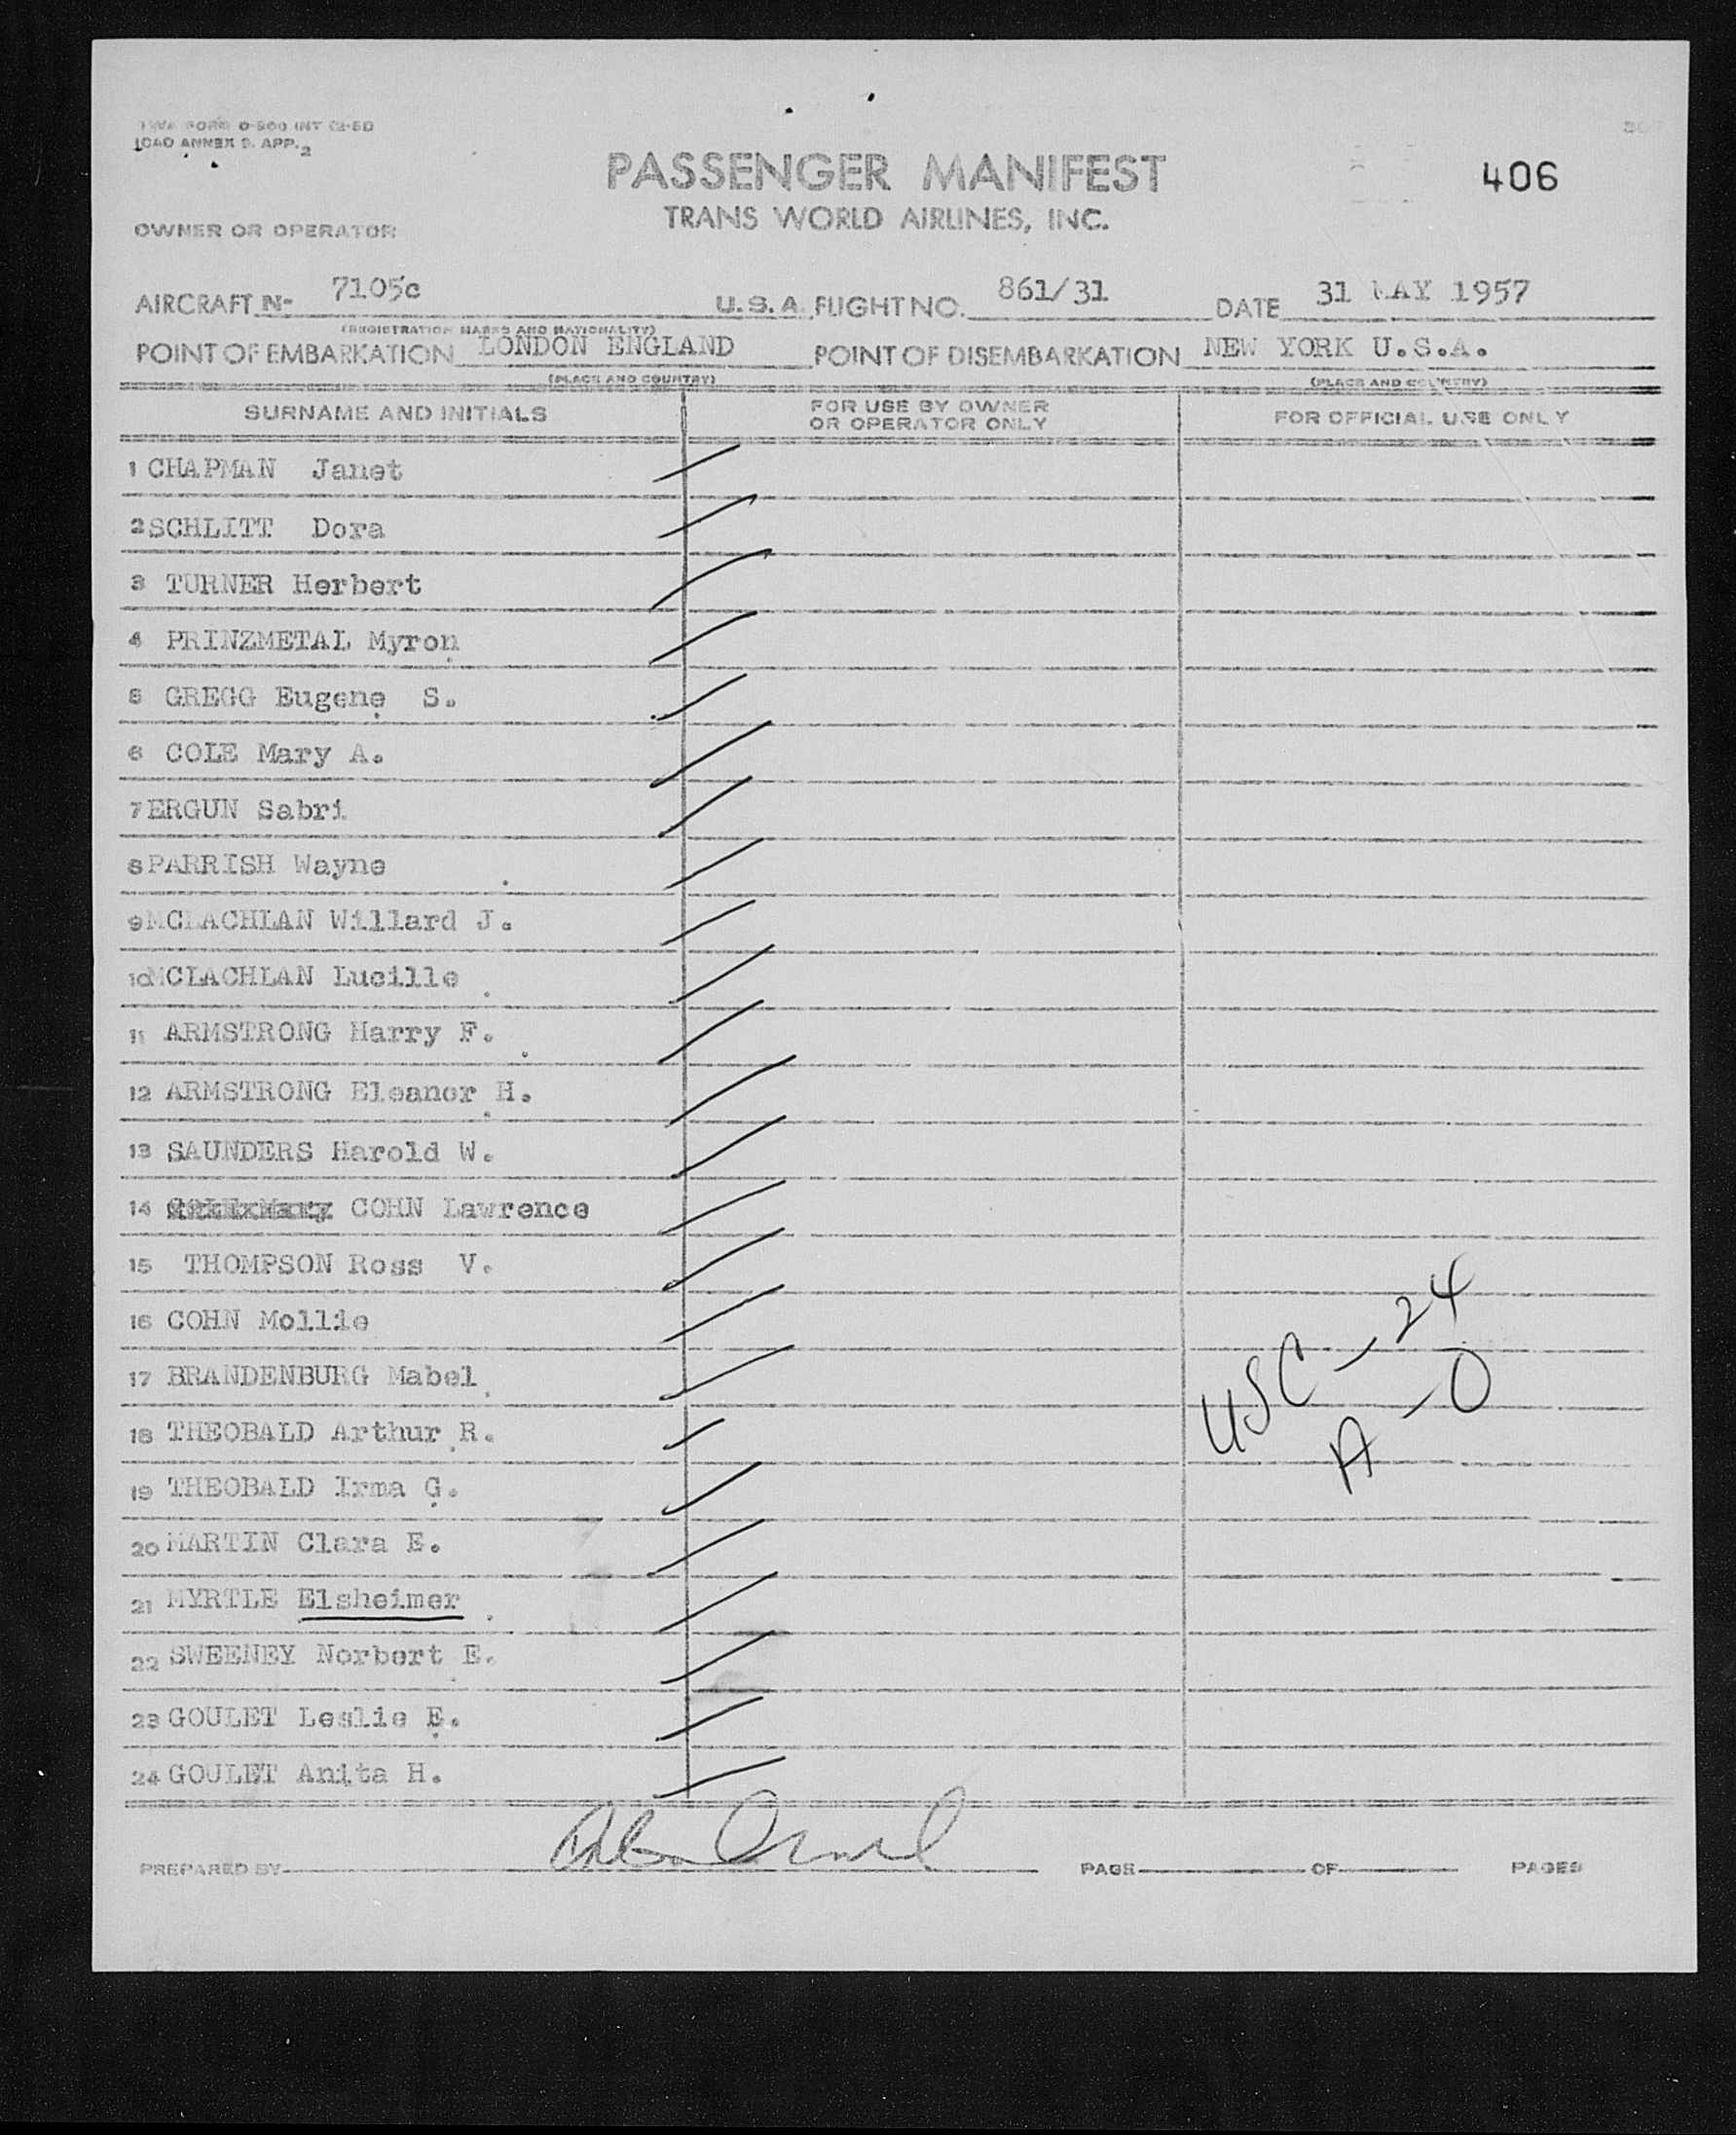 TWA FORM O-800 INT
ICAO ANNEX 9. APP. 2
PASSENGER MANIFEST
406
TRANS WORLD AIRLINES, INC.
OWNER OR OPERATOR
AIRCRAFT N- 7105c U.S.A. FLIGHT NO. 861/31 DATE 31 MAY 1957
(REGISTRATION MARKS AND NATIONALITY)
POINT OF EMBARKATION LONDON ENGLAND POINT OF DISEMBARKATION NEW YORK U.S.A.
(PLACE AND COUNTRY) (PLACE AND COUNTRY)
SURNAME AND INITIALS FOR USE BY OWNER OR OPERATOR ONLY FOR OFFICIAL USE ONLY
1 CHAPMAN Janet
2 SCHLITT Dora
3 TURNER Herbert
4 PRINZMETAL Myron
5 GREGG Eugene S.
6 COLE Mary A.
7 ERGUN Sabri
8 PARRISH Wayne
9 MCLACHLAN Willard J.
10 MCLACHLAN Lucille
11 ARMSTRONG Harry F.
12 ARMSTRONG Eleanor H.
13 SAUNDERS Harold W.
14 COHN Lawrence
15 THOMPSON Ross V.
16 COHN Mollie
17 BRANDENBURG Mabel
18 THEOBALD Arthur R.
19 THEOBALD Irma G.
20 MARTIN Clara E.
21 MYRTLE Elsheimer
22 SWEENEY Norbert E.
23 GOULET Leslie E.
24 GOULET Anita H.
USC - 24
A - 0
PREPARED BY PAGE OF PAGES